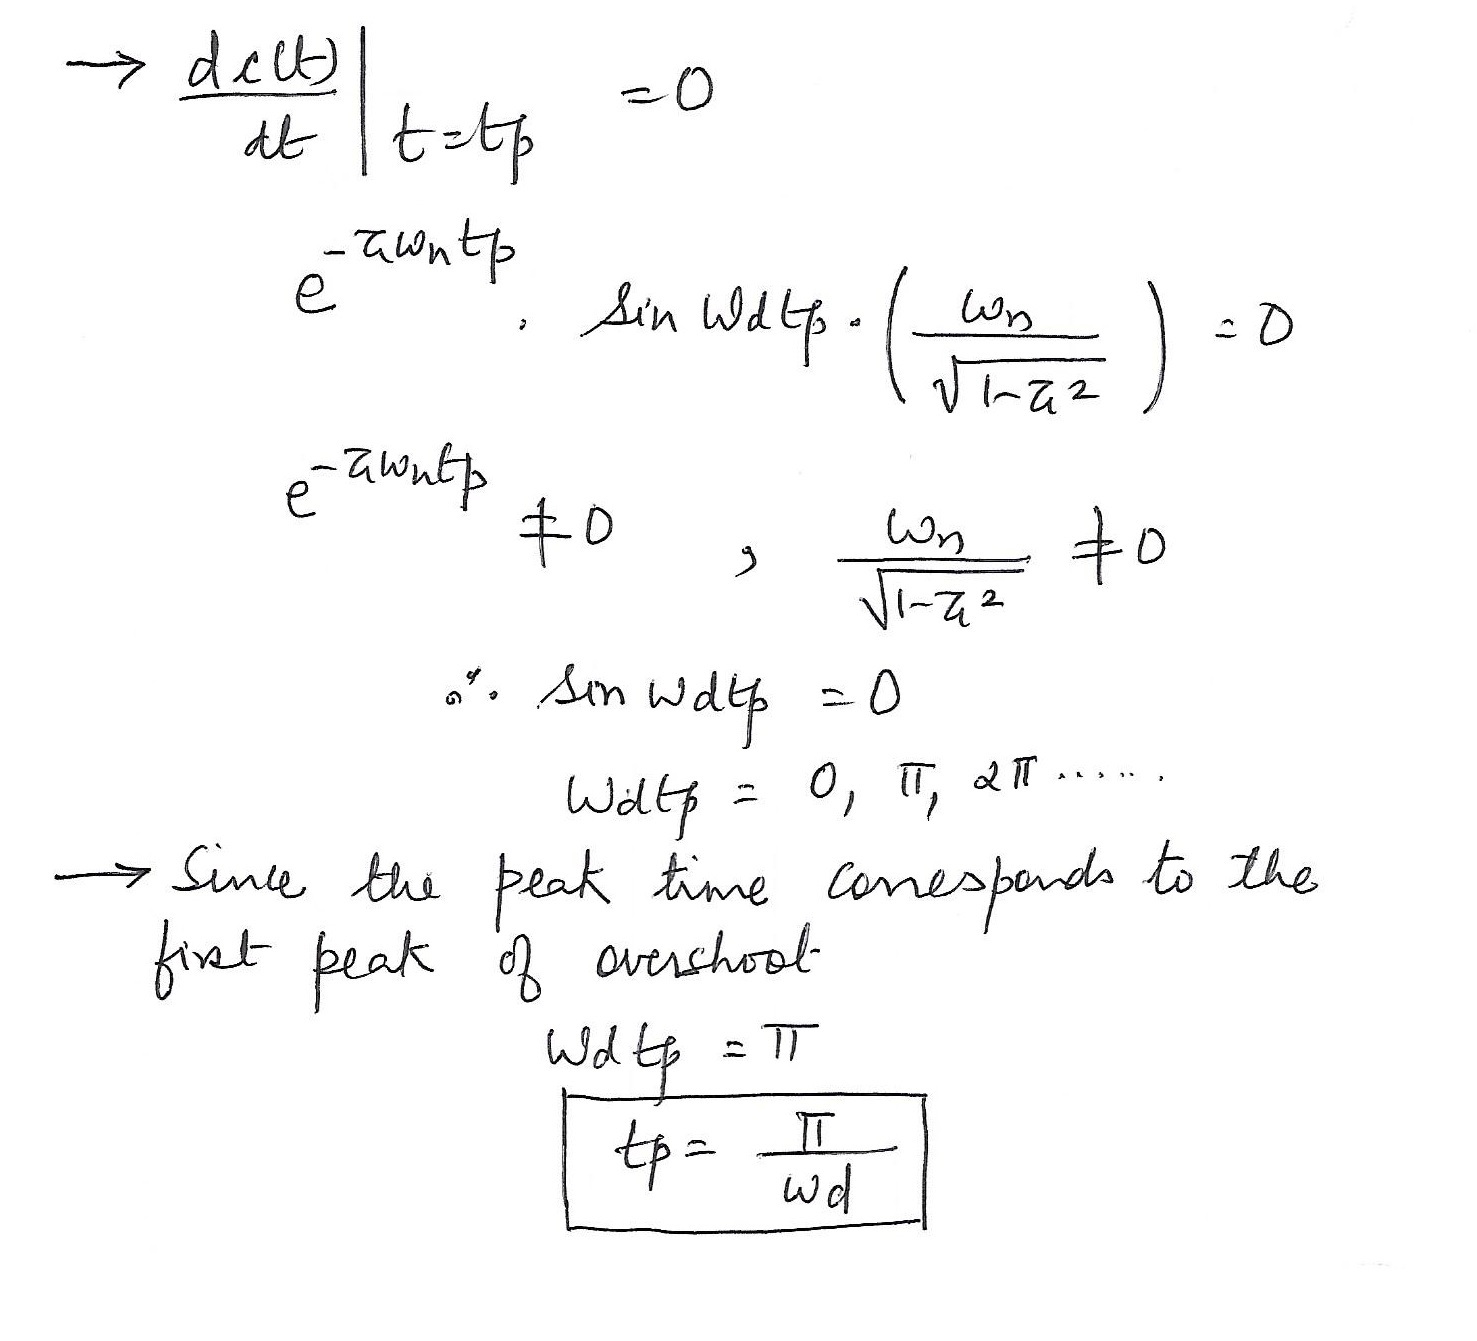 → dc(t)/dt | t=tp = 0
e^(-ζωn tp) . sin ωd tp . (ωn/√(1-ζ²)) = 0
e^(-ζωn tp) ≠ 0 , ωn/√(1-ζ²) ≠ 0
∴ sin ωd tp = 0
ωd tp = 0, π, 2π ......
→ Since the peak time corresponds to the
first peak of overshoot
ωd tp = π
tp = π/ωd